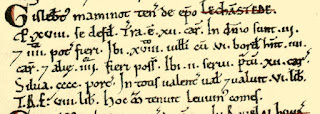 Gislebt' maminot ten' de epo LECHASTEDE.
p xviii. se defd. Tra. ē. xv. car. In dnio sunt. iii.
7 iiii. pot' fieri. Ibi. xviii. uilli cū. vi. bord hnt. iii.
car. 7 aliæ. iiii. fieri poss. Ibi. ii. serui. ptū. xv. car.
Silua. cccc. porc. In totis ualent' ual 7 ualuit. vi. lib.
T.R.E. viii. lib. Hoc ō tenuit Leuuin' comes.